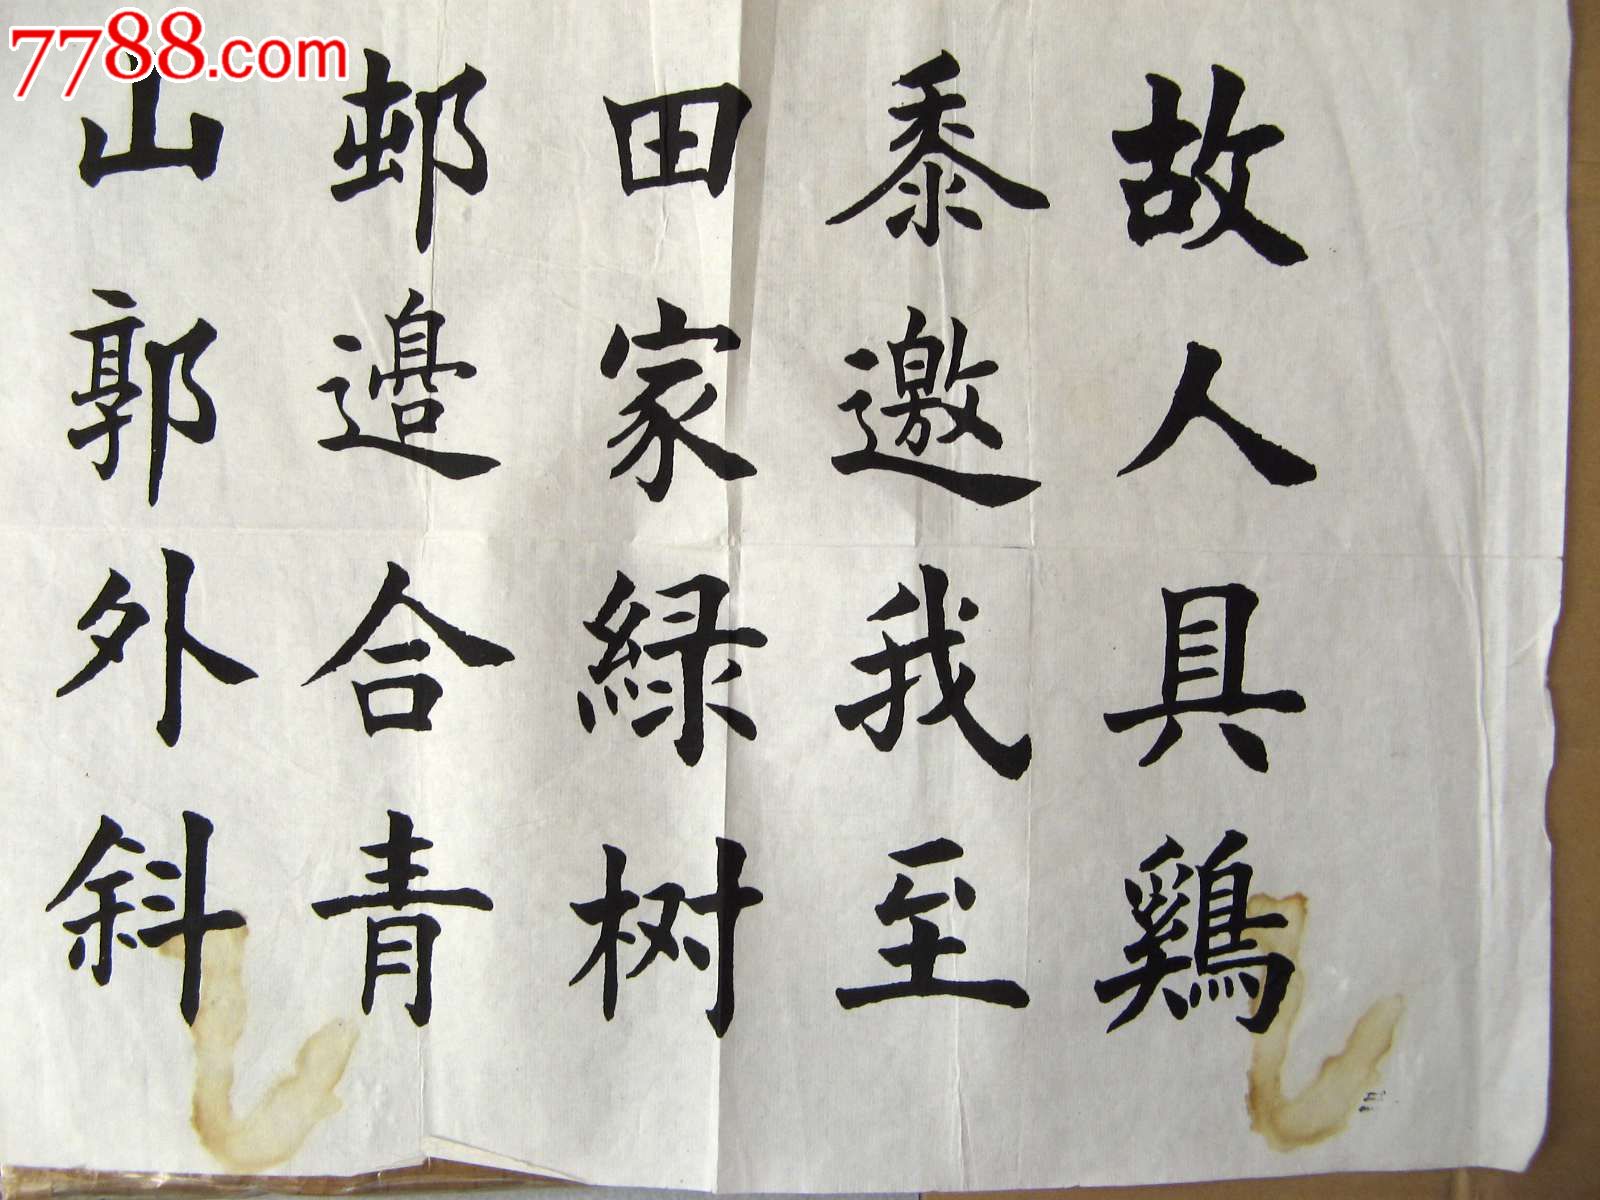 7788.com
故人具鷄
黍邀我至
田家緑树
邨邊合青
山郭外斜